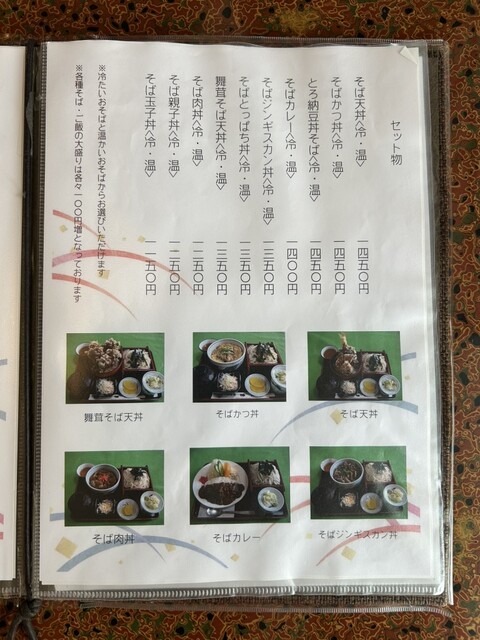 セット物
そば天丼〈冷・温〉 一四五〇円
そばかつ丼〈冷・温〉 一四五〇円
とろ納豆丼そば〈冷・温〉 一四五〇円
そばカレー〈冷・温〉 一四〇〇円
そばジンギスカン丼〈冷・温〉 一三五〇円
そばとっぱち丼〈冷・温〉 一三五〇円
舞茸そば天丼〈冷・温〉 一三五〇円
そば肉丼〈冷・温〉 一二五〇円
そば親子丼〈冷・温〉 一二五〇円
そば玉子丼〈冷・温〉 一一五〇円
※冷たいおそばと温かいおそばからお選びいただけます
※各種そば・ご飯の大盛りは各々一〇〇円増となっております
舞茸そば天丼
そばかつ丼
そば天丼
そば肉丼
そばカレー
そばジンギスカン丼